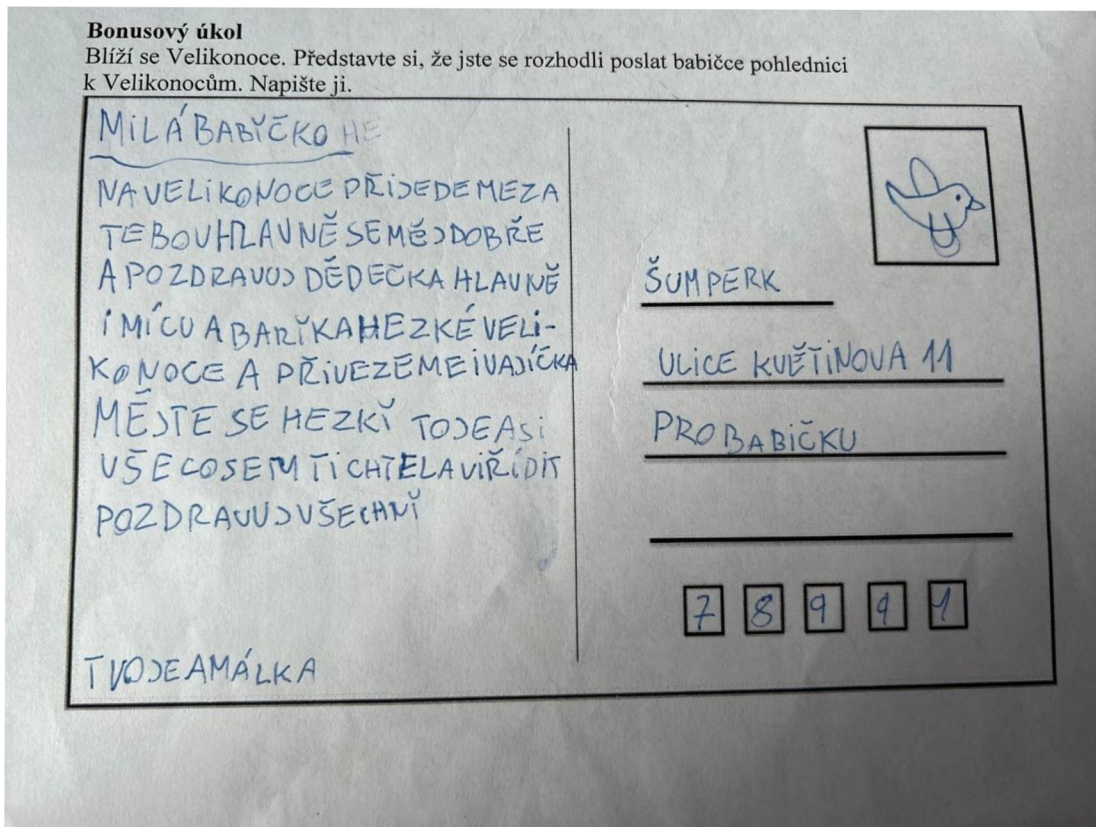 Bonusový úkol
Blíží se Velikonoce. Představte si, že jste se rozhodli poslat babičce pohlednici
k Velikonocům. Napište ji.
MILÁ BABIČKO HE
NA VELIKONOCE PŘIJEDEME ZA
TEBOU HLAVNĚ SE MĚJ DOBŘE
A POZDRAVUJ DĚDEČKA HLAVNĚ
I MÍCU A BAŘÍKA HEZKÉ VELI-
KONOCE A PŘIVEZEME I VAJÍČKA
MĚJTE SE HEZKÝ TO JE ASI
VŠE CO SEM TI CHTELA VIŘÍDIT
POZDRAVUJ VŠECHNY
TVOJE AMÁLKA
ŠUMPERK
ULICE KVĚTINOVA 11
PRO BABIČKU
7 8 9 9 1